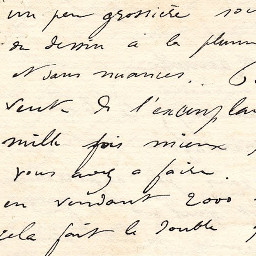 un peu grossière
ou dessin à la plume
et sans nuances..
vente de l'exemplai
mille fois mieux
vous avez à faire.
en vendant 2000
cela fait le double